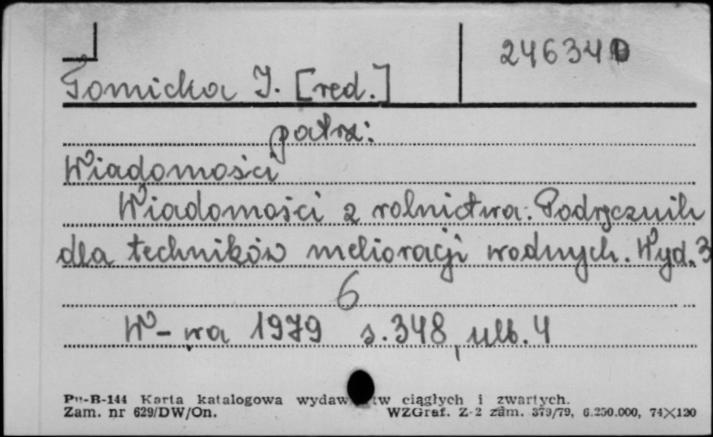 24634D
Łomicka J. [red.]
patrz:
Wiadomości
Wiadomości z rolnictwa. Podręcznik
dla techników melioracji wodnych. Wyd. 3
6
W-wa 1979 s. 348, nlb. 4
Pu-B-144 Karta katalogowa wydawnictw ciągłych i zwartych.
Zam. nr 629/DW/On. WZGraf. Z-2 zam. 379/79, 6.250.000, 74×120